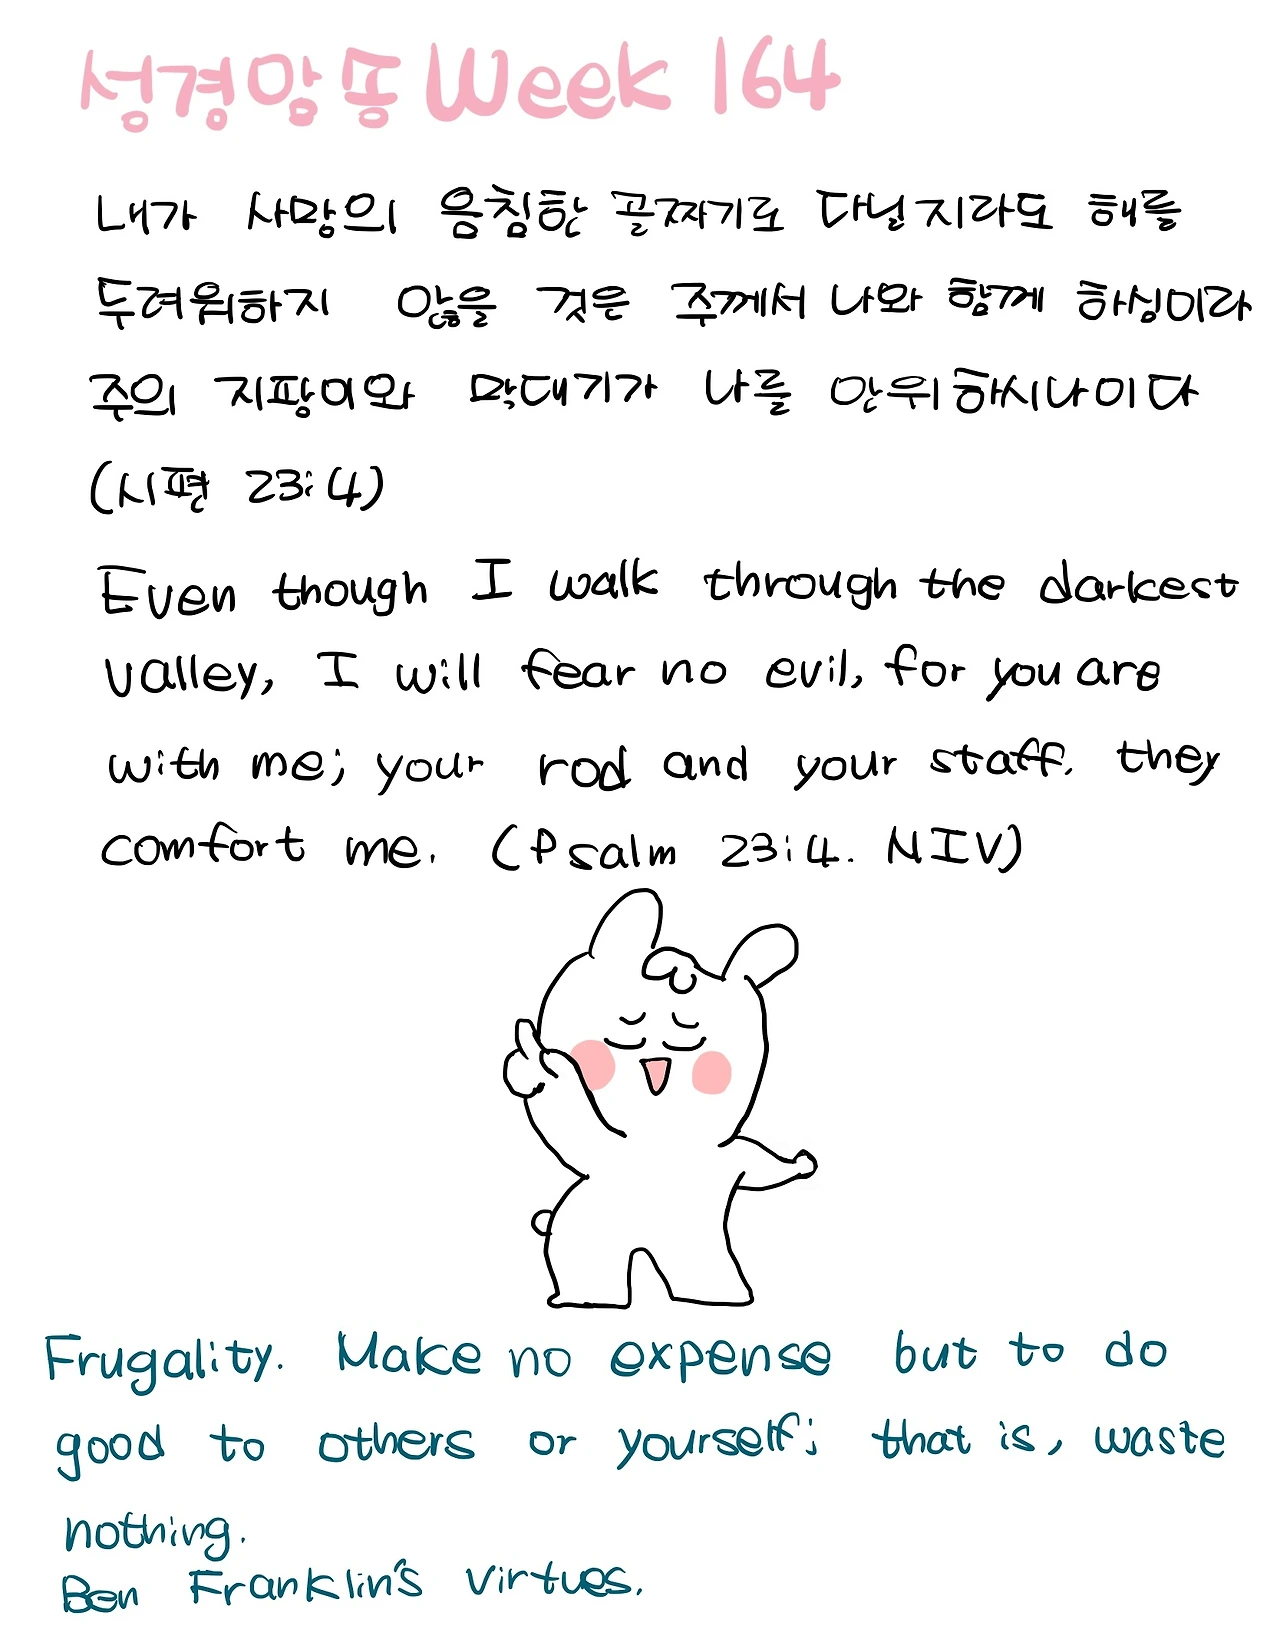 성경암송 Week 164
내가 사망의 음침한 골짜기로 다닐지라도 해를
두려워하지 않을 것은 주께서 나와 함께 하심이라
주의 지팡이와 막대기가 나를 안위하시나이다
(시편 23:4)
Even though I walk through the darkest
valley, I will fear no evil, for you are
with me; your rod and your staff, they
comfort me. (Psalm 23:4. NIV)
Frugality. Make no expense but to do
good to others or yourself; that is, waste
nothing.
Ben Franklin's virtues.